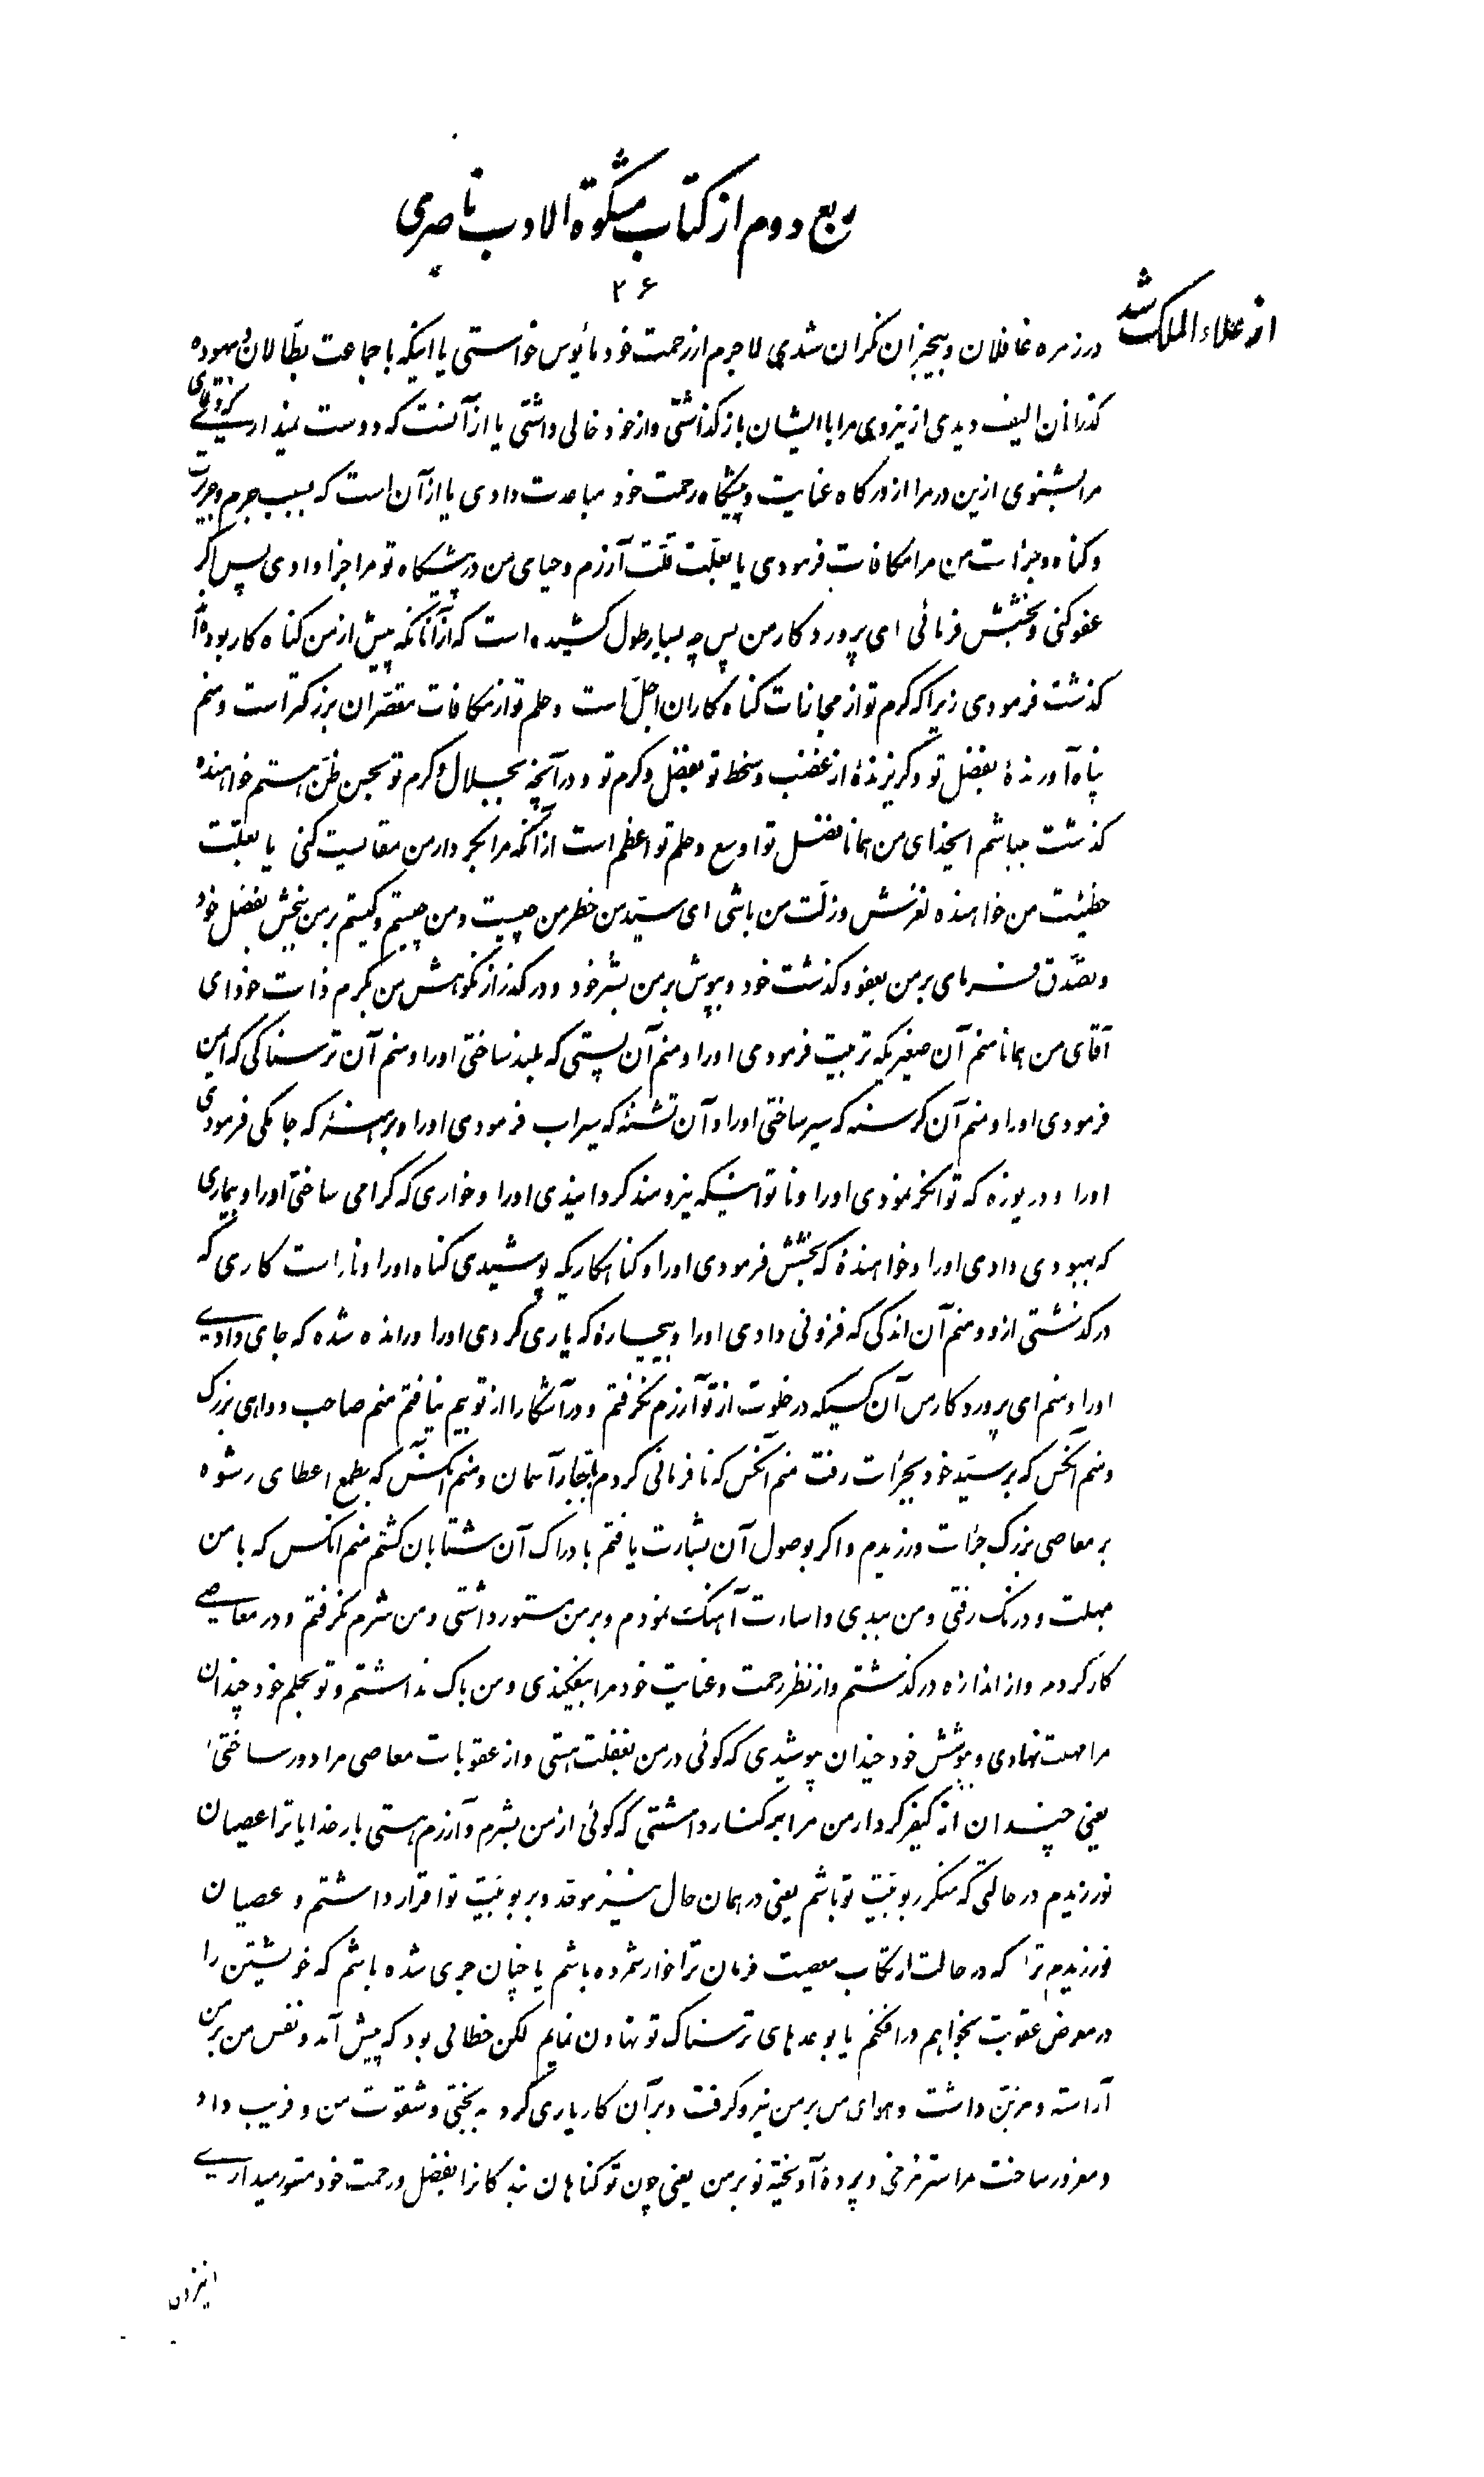 ربع دوم از کتاب مشکوة الادب ناصری
۲۶
از علاء الملک شد
در زمره غافلان و بیخبران نکران شدی لاجرم از رحمت خود مأیوس خواستی یا اینکه با جماعت بطّالان و بیهوده
گذرانان الیف دیدی از نیروی مرا با ایشان بازگذاشتی و از خود خالی داشتی یا از آنست که دوست نمیداری دعای
مرا بشنوی ازین در مرا از درگاه عنایت و پیشگاه رحمت خود مباعدت دادی یا از آن است که بسبب جرم و جریرت
و گناه و جرات من مرا مکافات فرمودی یا بعلّت قلّت آزرم و حیای من در پیشگاه تو مرا جزا دادی پس اگر
عفو کنی و بخشش فرمائی ای پروردکار من پس چه بسیار طول کشیده است که از آنانکه پیش از من کناه کار بوده‌اند
کذشت فرمودی زیرا که کرم تو از مجازات کناه کاران اجلّ است و حلم تو از مکافات مقصّران بزرکتر است و منم
پناه آورندۀ بفضل تو و کریزندۀ از غضب و سخط تو بفضل و کرم تو و در آنچه بجلال و کرم تو بحسن ظن هستم خواهنده
کذشت میباشم ایخدای من همانا فضل تو اوسع و حلم تو اعظم است از آنکه مرا بکردار من مقایست کنی یا بعلّت
خطیئت من خواهنده لغزش و زلّت من باشی ای سیّد من خطر من چیست و من چیستم و کیستم بر من ببخش بفضل خود
و تصدّق فرمای بر من بعفو و کذشت خود و بپوش بر من بستر خود و درکذر از نکوهش من بکرم ذات خود ای
آقای من همانا منم آن صغیریکه تربیت فرمودی او را و منم آن پستی که بلند ساختی او را و منم آن ترسناکی که ایمن
فرمودی او را و منم آن کرسنه که سیر ساختی او را و آن تشنۀ که سیراب فرمودی او را و برهنۀ که جامکی فرمودی
او را و دریوزه که توانکر نمودی او را و ناتوانیکه نیرومند کردانیدی او را و خواری که کرامی ساختی او را و بیماری
که بهبودی دادی او را و خواهندۀ که بخشش فرمودی او را و کناهکاریکه پوشیدی کناه او را و ناراست کاری که
درکذشتی ازو و منم آن اندکی که فزونی دادی او را و بیچارۀ که یاری کردی او را و رانده شده که جای دادی
او را و منم ای پروردکار من آن کسیکه در خلوت از تو آزرم نکرفتم و در آشکارا از تو بیم نیافتم منم صاحب دواهی بزرک
و منم آنکس که بر سیّد خود بجرأت رفت منم آنکس که نافرمانی کردم بجبّار آسمان و منم آنکس که بطمع اعطای رشوه
بر معاصی بزرک جرأت ورزیدم و اکر بوصول آن بشارت یافتم بادراک آن شتابان کشتم منم انکس که با من
بمهلت و درنک رفتی و من ببدی و اساءت آهنک نمودم و بر من مستور داشتی و من شرم نکرفتم و در معاصی
کار کردم و از اندازه درکذشتم و از نظر رحمت و عنایت خود مرا بیفکندی و من باک نداشتم و تو بحلم خود چندان
مرا مهلت نهادی و بپوشش خود چندان بپوشیدی که کوئی در من بغفلت هستی و از عقوبات معاصی مرا دور ساختی
یعنی چندان از کیفر کردار من مرا برکنار داشتی که کوئی از من بشرم و آزرم هستی بار خدایا ترا عصیان
نورزیدم در حالتی که منکر ربوبیّت تو باشم یعنی در همان حال نیز موحّد و بربوبیّت تو اقرار داشتم و عصیان
نورزیدم ترا که در حالت ارتکاب معصیت فرمان ترا خوار شمرده باشم یا چنان جری شده باشم که خویشتن را
در معرض عقوبت بخواهم در افکنم یا بوعدهای ترسناک تو تهاون نمایم لکن خطائی بود که پیش آمد و نفس من بر من
آراسته و مزیّن داشت و هوای من بر من نیرو کرفت و بر آن کار یاری کرد بدبختی و شقوت من و فریب داد
و مغرور ساخت مرا ستر مرخی و پردۀ آویختۀ تو بر من یعنی چون تو کناهان بندکانرا بفضل و رحمت خود مستور میداری